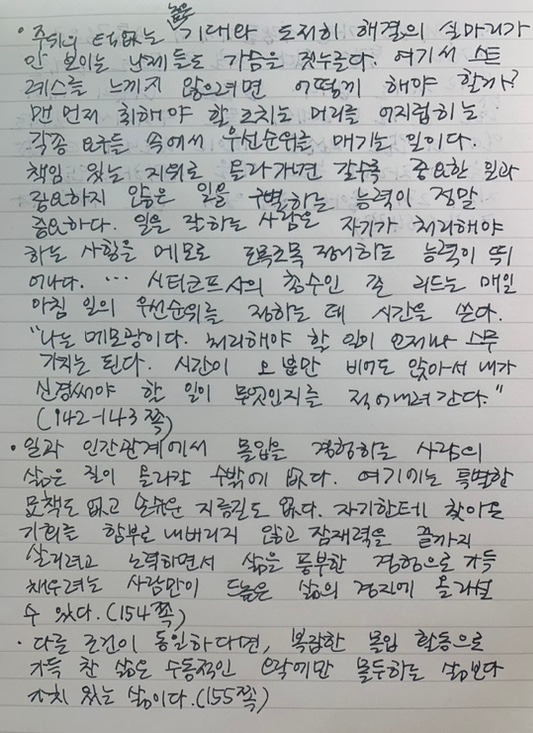 높은
· 주위의 터없는 기대와 도저히 해결의 실마리가
안 보이는 난제들도 가슴을 짓누른다. 여기서 스트
레스를 느끼지 않으려면 어떻게 해야 할까?
맨 먼저 취해야 할 조치는 머리를 어지럽히는
각종 요구들 속에서 우선순위를 매기는 일이다.
책임 있는 지위로 올라가면 갈수록 중요한 일과
중요하지 않은 일을 구별하는 능력이 정말
중요하다. 일을 잘하는 사람은 자기가 처리해야
하는 사항을 메모로 조목조목 정리하는 능력이 뛰
어나다. … 시티코프사의 총수인 존 리드는 매일
아침 일의 우선순위를 정하는 데 시간을 쓴다.
"나는 메모광이다. 처리해야 할 일이 언제나 스무
가지는 된다. 시간이 오 분만 비어도 앉아서 내가
신경써야 할 일이 무엇인지를 적어내려 간다."
(142-143쪽)
· 일과 인간관계에서 몰입을 경험하는 사람의
삶은 질이 올라갈 수밖에 없다. 여기에는 특별한
묘책도 없고 손쉬운 지름길도 없다. 자기한테 찾아온
기회를 함부로 내버리지 않고 잠재력을 끝까지
살리려고 노력하면서 삶을 풍부한 경험으로 가득
채우려는 사람만이 드높은 삶의 경지에 올라설
수 있다. (154쪽)
· 다른 조건이 동일하다면, 복잡한 몰입 활동으로
가득 찬 삶은 수동적인 오락에만 몰두하는 삶보다
가치 있는 삶이다. (155쪽)